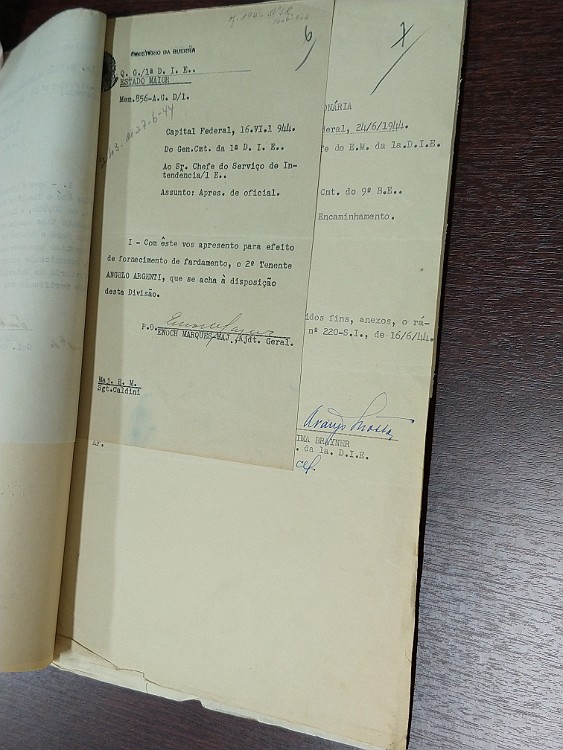 6
MINISTÉRIO DA GUERRA
Q. G./1ª D. I. E..
ESTADO MAIOR
Mem.856-A.G. D/1.
Capital Federal, 16.VI.1944.
Do Gen.Cmt. da 1ª D. I. E..
Ao Sr. Chefe do Serviço de In-
tendencia/1 E..
Assunto: Apres. de oficial.
I - Com êste vos apresento para efeito
de fornecimento de fardamento, o 2º Tenente
ANGELO ARGENTI, que se acha à disposição
desta Divisão.
P.O.
ENOCH MARQUES-MAJ.,Ajdt. Geral.
Maj. H. M.
Sgt.Caldini
7
ONÁRIA
deral, 24/6/1944.
fe do E.M. da 1a.D.I.E.
Cmt. do 9º B.E..
Encaminhamento.
idos fins, anexos, o rá-
nº 220-S.I., de 16/6/44.
IMA BRAYNER
. da 1a. D.I.E.